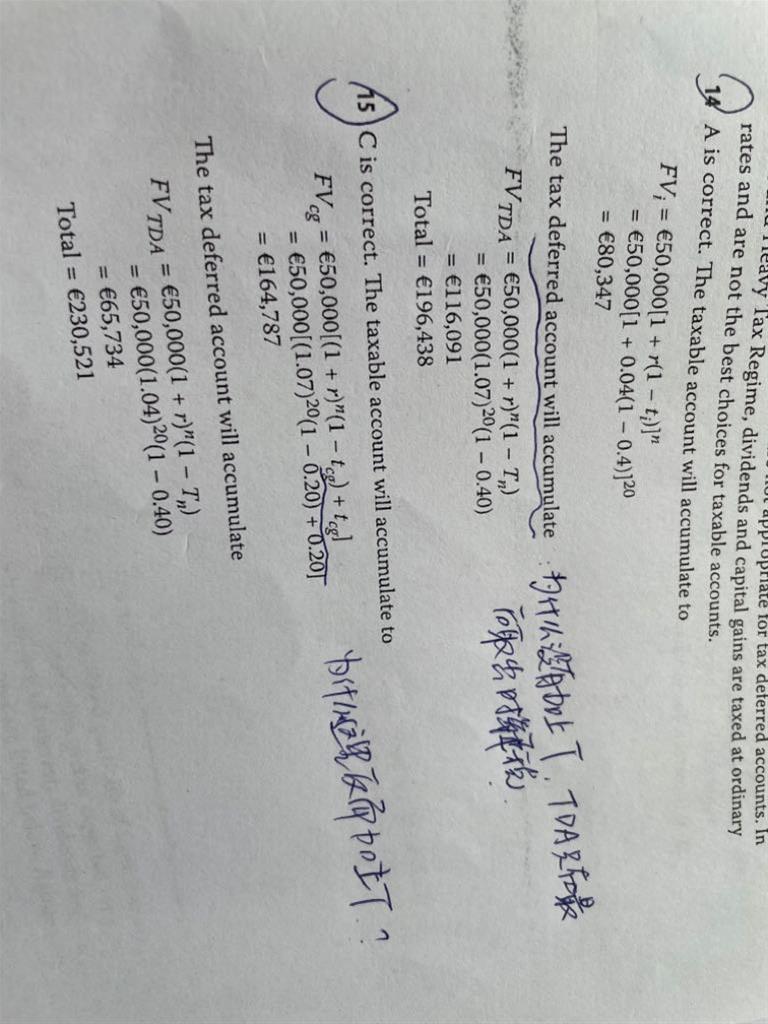 and Heavy Tax Regime, dividends and capital gains are taxed at ordinary
rates and are not the best choices for taxable accounts.
14 A is correct. The taxable account will accumulate to
FVᵢ = €50,000[1 + r(1 − tᵢ)]ⁿ
= €50,000[1 + 0.04(1 − 0.4)]²⁰
= €80,347
The tax deferred account will accumulate :为什么没有加上T,TDA是在最
后取出时算税.
FV_TDA = €50,000(1 + r)ⁿ(1 − Tₙ)
= €50,000(1.07)²⁰(1 − 0.40)
= €116,091
Total = €196,438
15 C is correct. The taxable account will accumulate to
FV_cg = €50,000[(1 + r)ⁿ(1 − t_cg) + t_cg]
= €50,000[(1.07)²⁰(1 − 0.20) + 0.20] 为什么这里反而加上T?
= €164,787
The tax deferred account will accumulate
FV_TDA = €50,000(1 + r)ⁿ(1 − Tₙ)
= €50,000(1.04)²⁰(1 − 0.40)
= €65,734
Total = €230,521